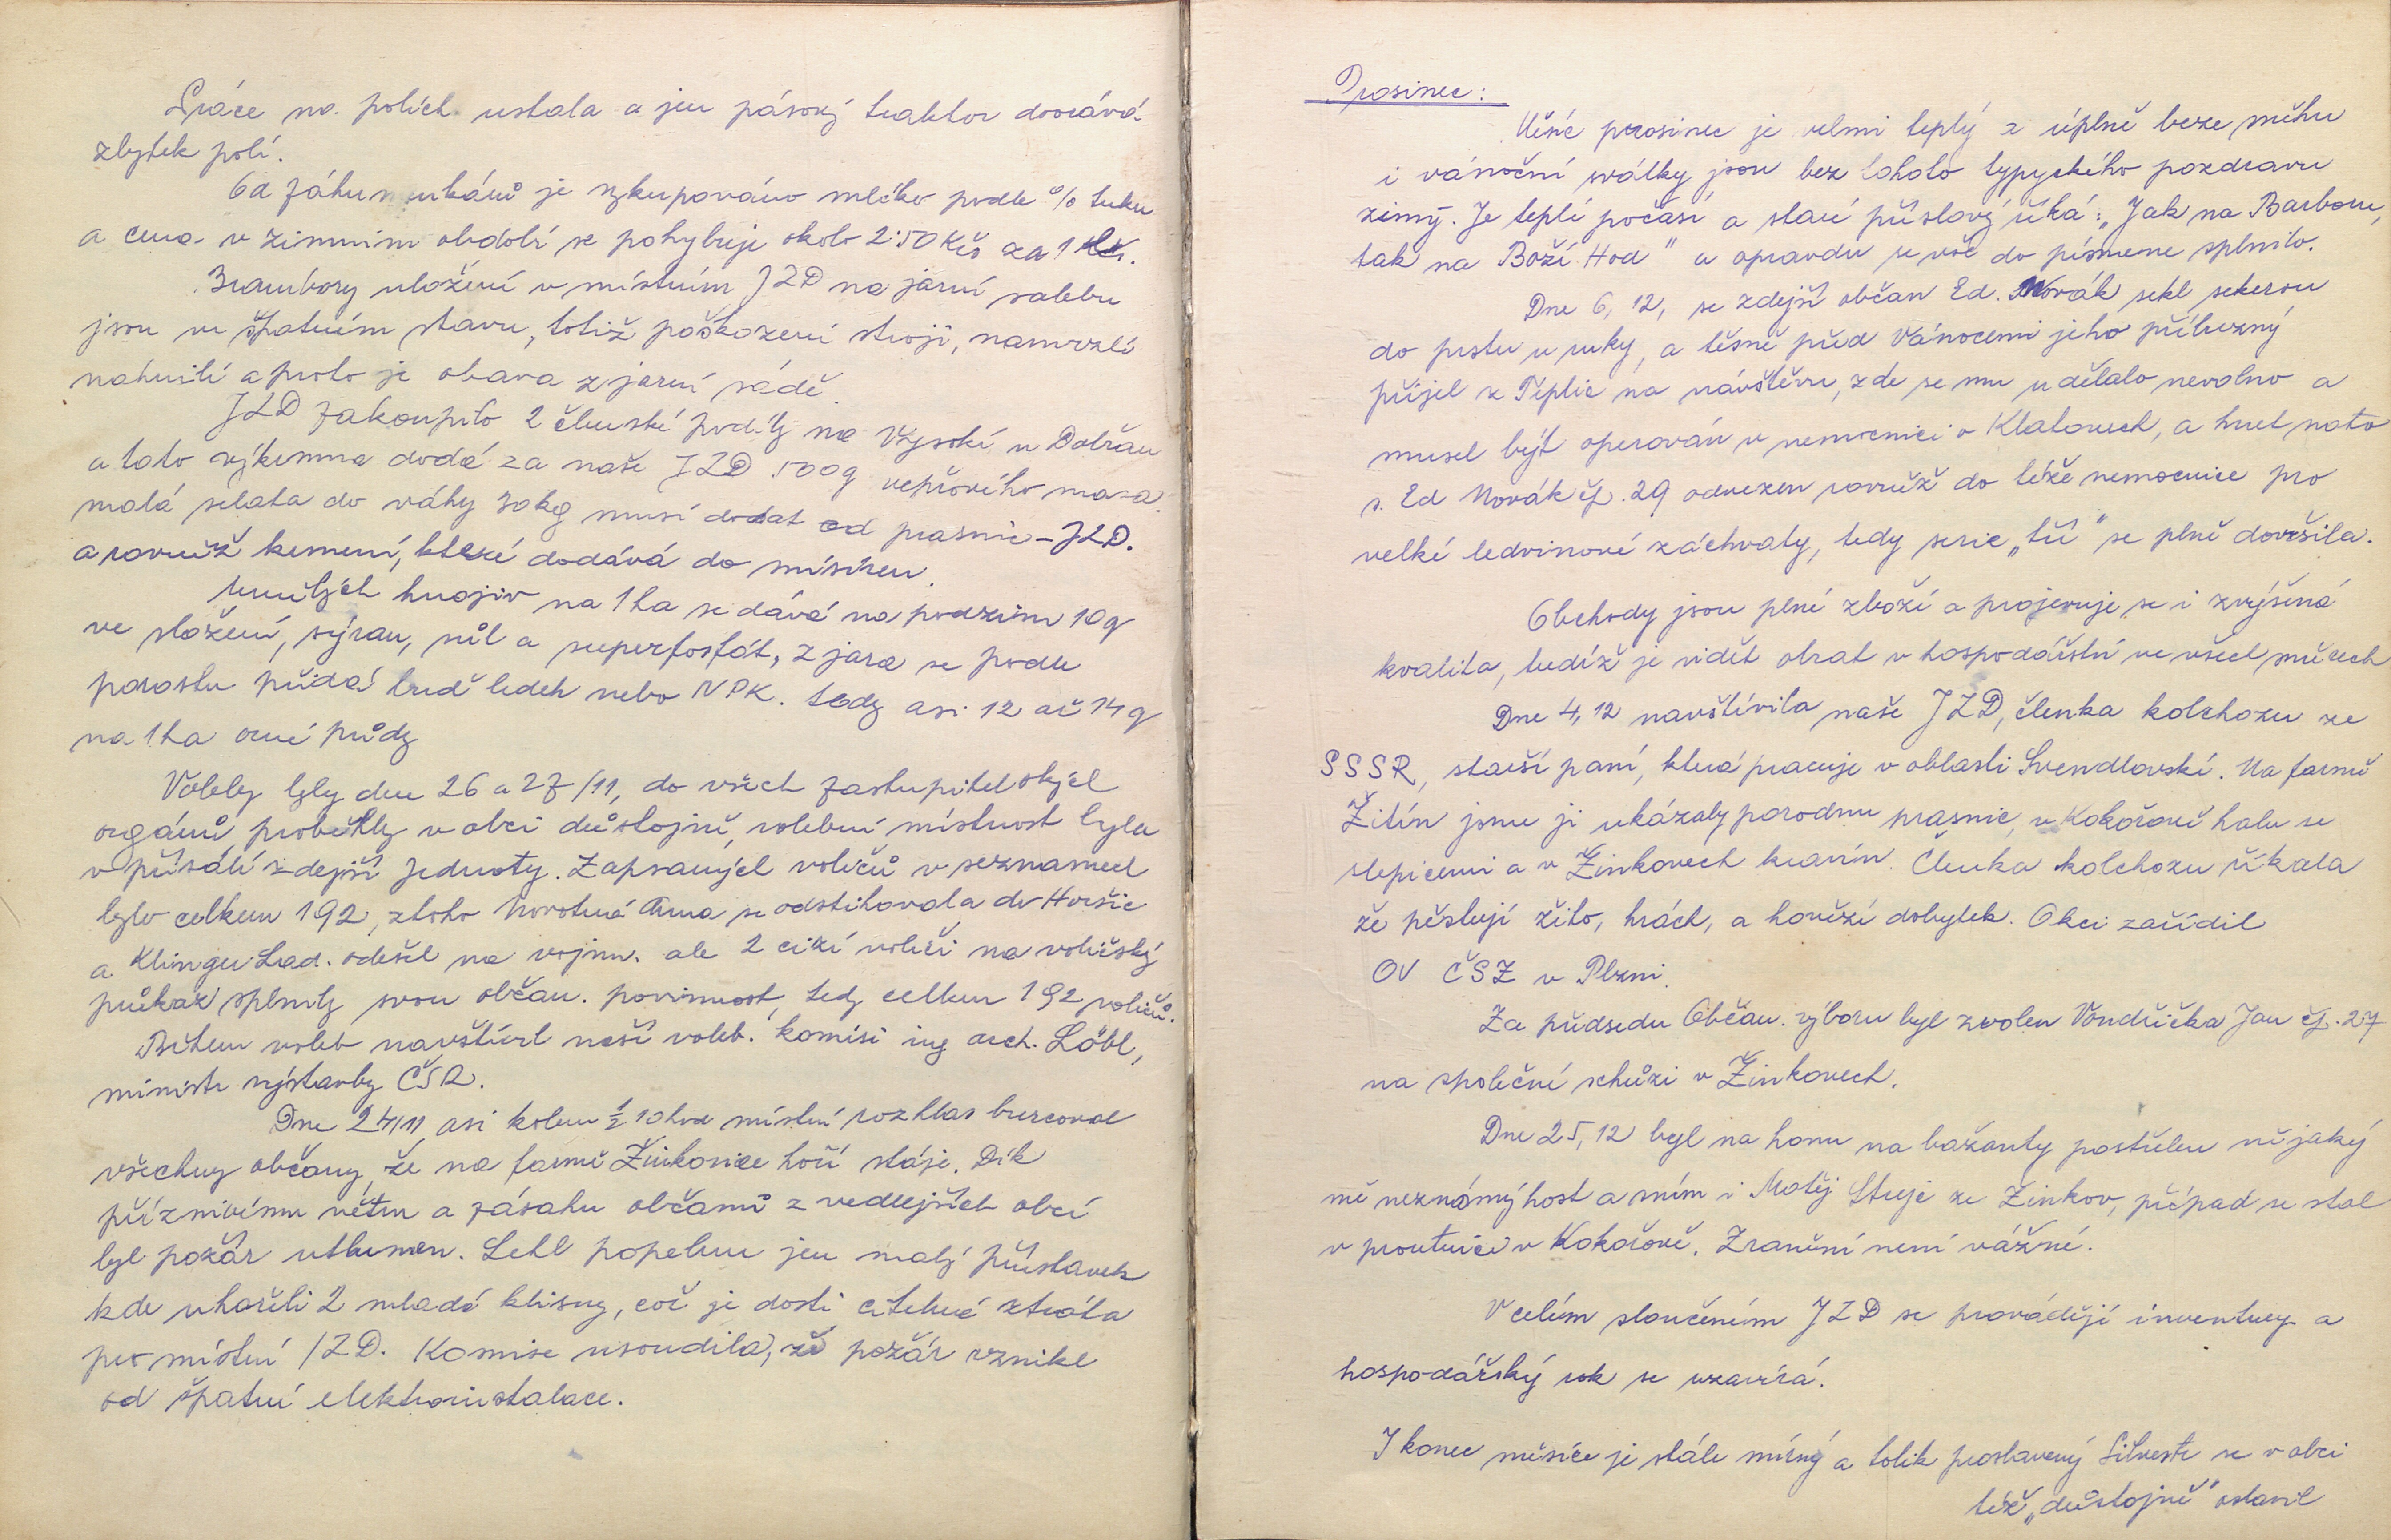 Práce na polích ustala a jen pásový traktor dooravá
zbytek polí.
Od záhumenkářů je vykupováno mléko podle % tuku
a cena v zimním období se pohybuje okolo 2:50 Kčs za 1 ltr.
Brambory uložené v místním JZD na jarní sadbu
jsou ve špatném stavu, totiž poškození stroji, namrzlé
nahnilé a proto je obava z jarní sádě.
JZD zakoupilo 2 členské podíly na Vysoké u Dobřan
a tato výkrmna dodá za naše JZD 500q vepřového masa.
malá selata do váhy 30kg musí dodat od prasnic - JZD.
a rovněž krmení, které dodává do mísíren.
Umělých hnojiv na 1ha se dává na podzim 10q
ve složení, sýran, sůl a superfosfát, z jara se podle
porostu přidá buď ledek nebo NPK. tedy asi 12 až 14q
na 1ha orné půdy
Volby byly dne 26 a 27/11, do všech zastupitelských
orgánů proběhly v obci důstojně, volební místnost byla
v přísálí zdejší Jednoty. Zapsaných voličů v seznamech
bylo celkem 192, z toho Novotná Anna se odstěhovala do Horšic
a Klinger Lad. odešel na vojnu. ale 2 cizí voliči na voličský
průkaz splnily svou občan. povinnost, tedy celkem 192 voličů.
Během voleb navštívil naší voleb. komisi ing. arch. Löbl,
ministr výstavby ČSR.
Dne 24/11, asi kolem ½ 10 hod místní rozhlas burcoval
všechny občany, že na farmě Žinkovice hoří stáje. Dík
příznivému větru a zásahu občanů z vedlejších obcí
byl požár utlumen. Lehl popelem jen malý přístavek
kde uhořeli 2 mladé klisny, což je dosti citelná ztráta
pro místní JZD. Komise usoudila, že požár vznikl
od špatné elektroinstalace.
Prosinec:
Měsíc prosinec je velmi teplý a úplně beze sněhu
i vánoční svátky jsou bez tohoto typyckého pozdravu
zimý. Je teplé počasí a staré příslový říká: "Jak na Barboru,
tak na Boží Hod" a opravdu se vše do písmene splnilo.
Dne 6, 12, se zdejší občan Ed. Novák sekl sekerou
do prstu u ruky, a těsně před Vánocemi jeho příbuzný
přijel z Téplic na návštěvu, zde se mu udělalo nevolno a
musel být operován v nemocnici v Klatovech, a hned nato
s. Ed Novák čp. 29 odvezen rovněž do téže nemocnice pro
velké ledvinové záchvaty, tedy serie "tří" se plně dovršila.
Obchody jsou plné zboží a projevuje se i zvýšená
kvalita, tudíž je vidět obrat v hospodářství ve všech směrech
Dne 4, 12 navštívila naše JZD, členka kolchozu ze
SSSR, starší paní, která pracuje v oblasti Svendlovské. Na farmě
Žitín jsme ji ukázaly porodnu prasnic, v Kokořově halu se
slepicemi a v Žinkovech kravín. Členka kolchozu říkala
že pěstují žito, hrách, a hovězí dobytek. Akci zařídil
OV ČSŽ v Plzni.
Za předsedu Občan. výboru byl zvolen Vondřička Jan čp. 27
na společné schůzi v Žinkovech.
Dne 25, 12 byl na honu na bažanty postřelen nějaký
mě neznámý host a sním i Matěj Strejc ze Žinkov, případ se stal
v proutnici v Kokořově. Zranění není vážné.
V celém sloučeném JZD se provádějí inventury a
hospodářský rok se uzavírá.
I konec měsíce je stále mírný a tolik proslavený Silvestr se v obci
též "důstojně" oslavil